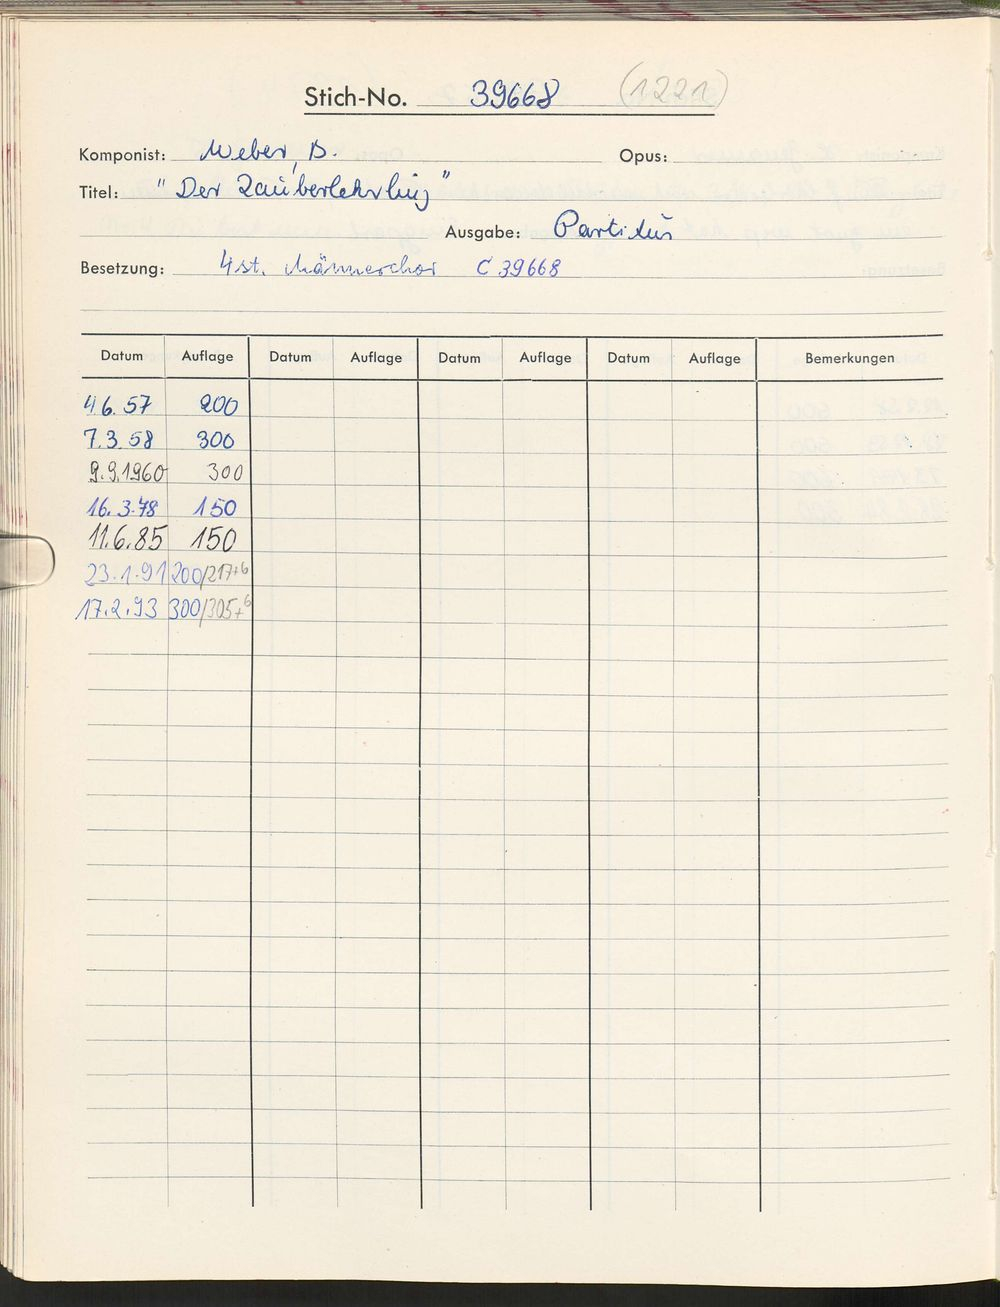 Stich-No. 39668 (1221)
Komponist: Weber, B. Opus:
Titel: "Der Zauberlehrling"
Ausgabe: Partitur
Besetzung: 4st. Männerchor C 39668
Datum Auflage Datum Auflage Datum Auflage Datum Auflage Bemerkungen
4.6.57 200
7.3.58 300
9.9.1960 300
16.3.78 150
11.6.85 150
23.1.91 200/217+6
17.2.93 300/305+6